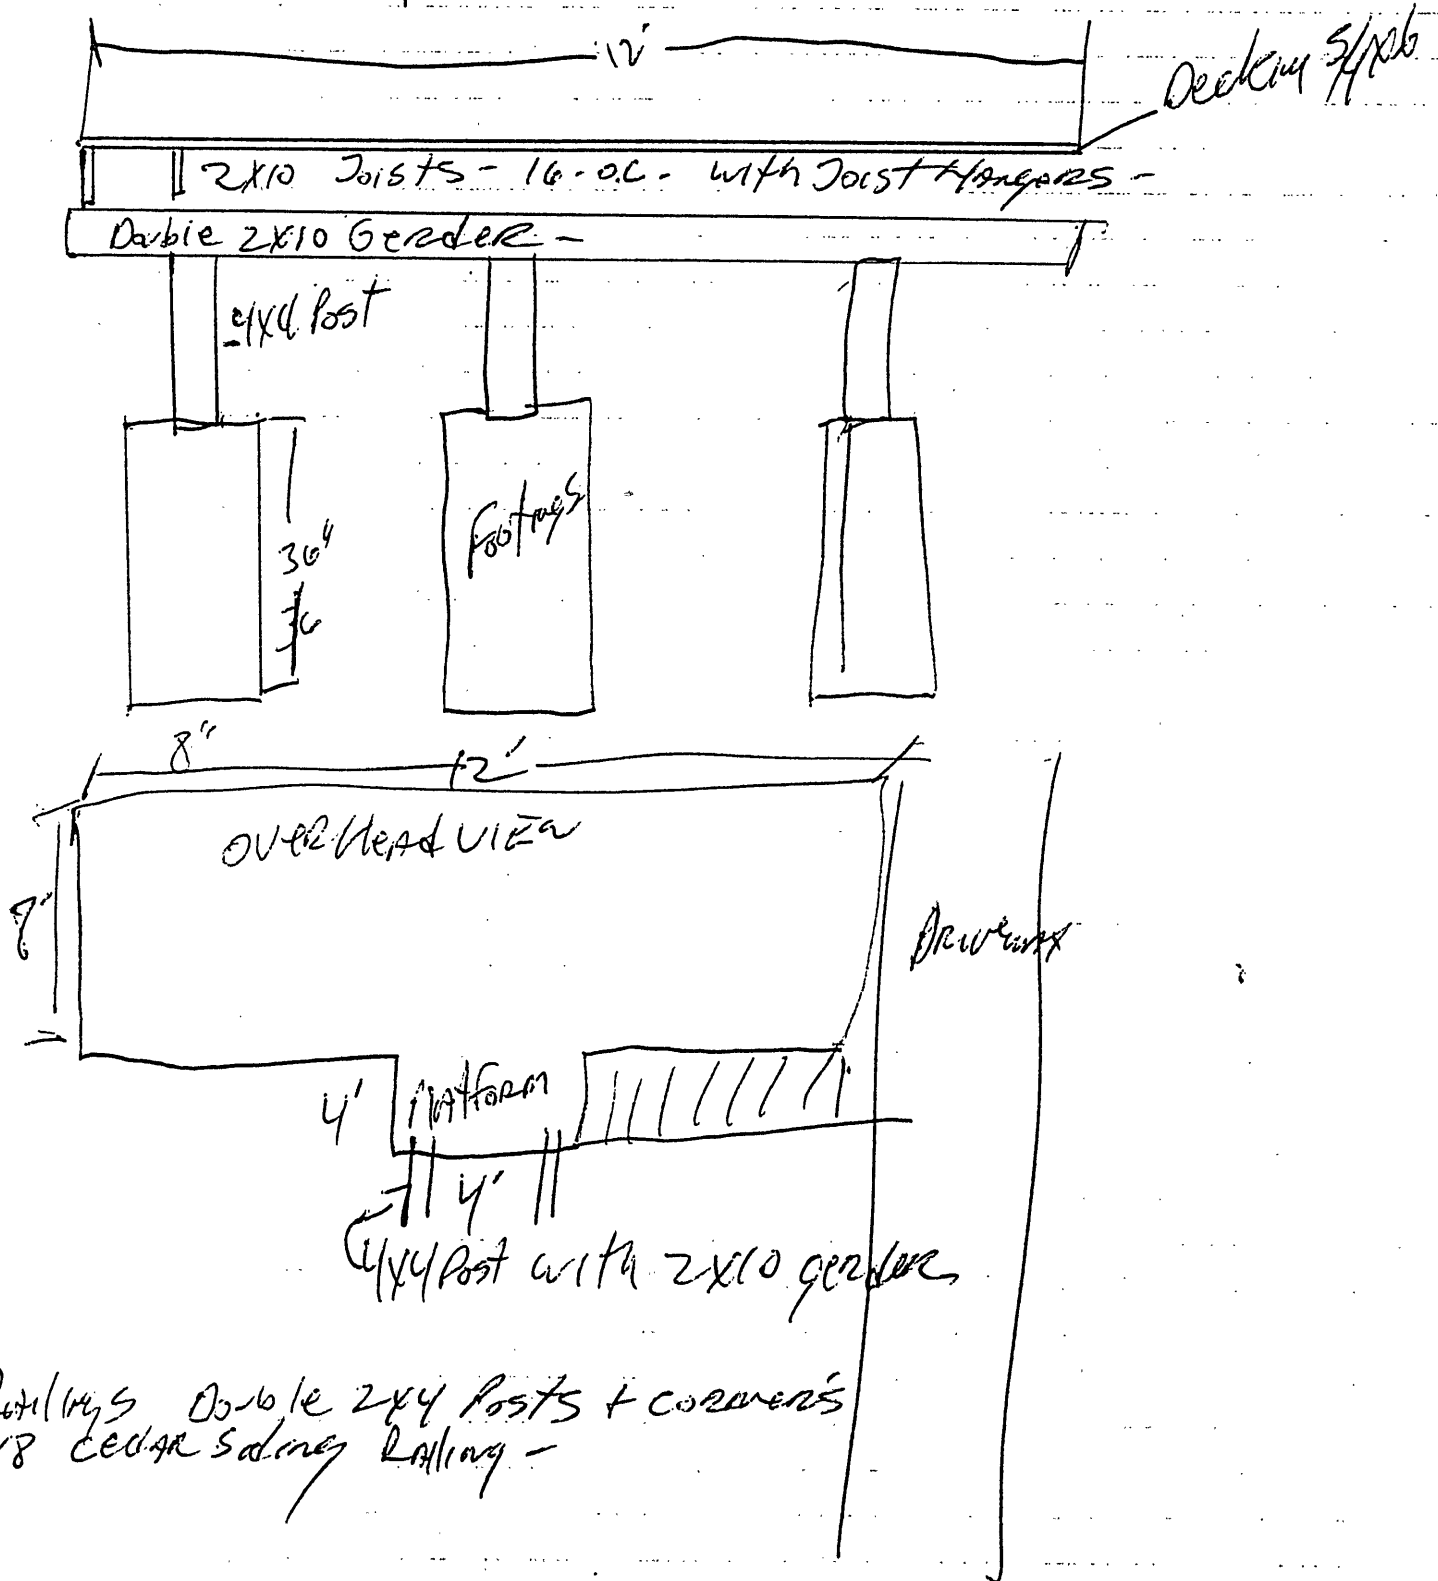 12'
Decking 5/4x6
2X10 Joists - 16 - O.C. - with Joist Hangers -
Double 2X10 Gerder -
4X4 Post
36"
36
Footings
8"
12'
OVERHEAD VIEW
8'
Driveway
4'
Platform
4'
4X4 Post with 2X10 gerders
Railings Double 2X4 Posts + CORNERS
CEDAR Siding Railing -